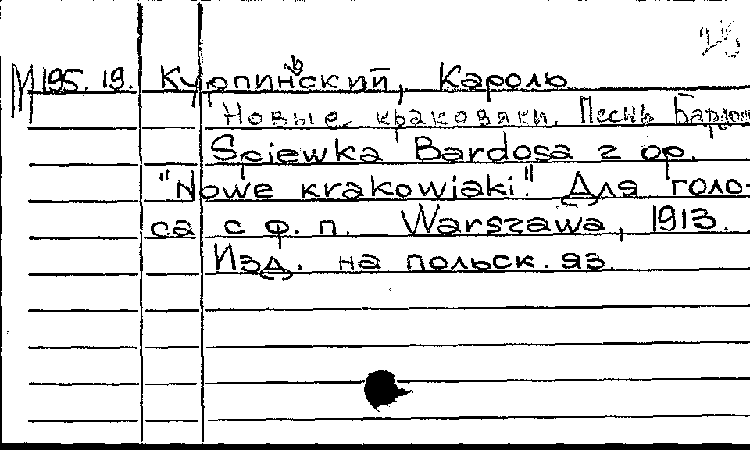 М 195.19. Курпиньский, Кароль
Новые краковяки. Песнь Бардоса
Spiewka Bardosa z op.
"Nowe krakowjaki." Для голо-
са с ф. п. Warszawa, 1913.
Изд. на польск. яз.